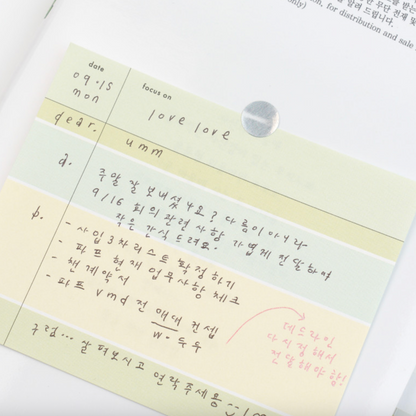 무단 전재 및
for distribution and sale
only)
date
09.15
mon
focus on
love love
dear.
umm
a.
주말 잘 보내셨나요? 다름이 아니라
9/16 회의 관련 사항 가볍게 전달하며
작은 간식 드려요.
b.
- 사입 3차 리스트 확정하기
- 파프 현재 업무사항 체크
- 핸 계약서
- 파트 vmd 전 매대 컨셉
w. 두두
데드라인
다시 정해서
전달해야 함!
구럼... 살펴보시고 연락주세용